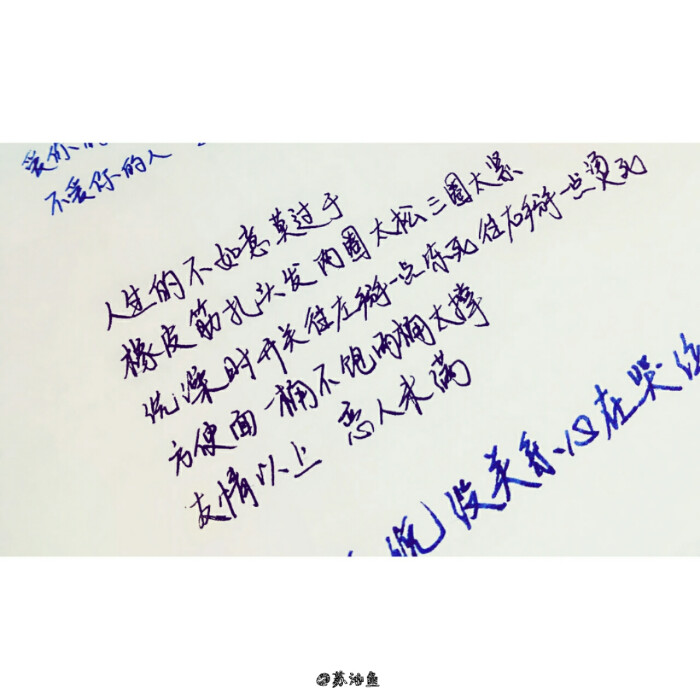 爱你的
不爱你的人
人生的不如意莫过于
橡皮筋扎头发两圈太松三圈太紧
洗澡时开关往左掰一点冻死往右掰一点烫死
方便面一桶不饱两桶太撑
友情以上 恋人未满
说没关系心在哭泣
@苏油鱼